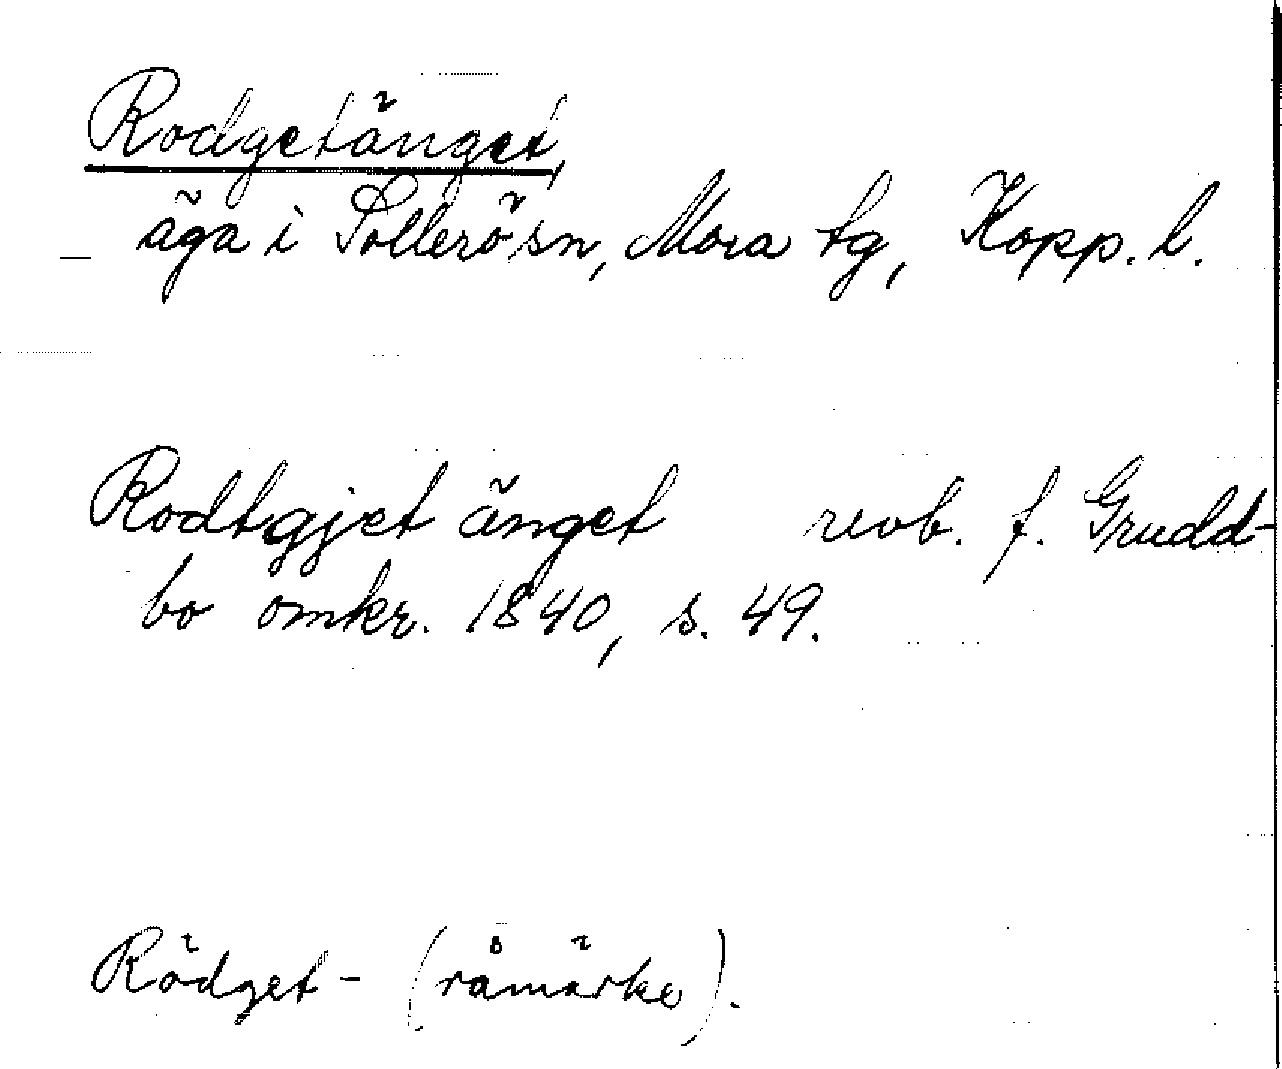 Rodgetänget,
äga i Sollerö sn, Mora tg, Kopp. l.
Rodtgjet änget revb. f. Grudd-
bo omkr. 1840, s. 49.
Rödget- (råmärke).